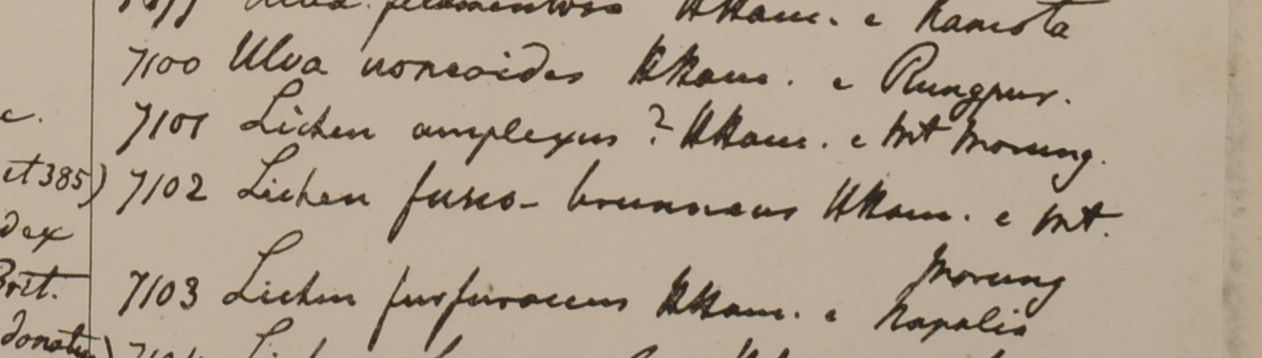 Ulva filamentosa HHam. e Kamota
7100 Ulva nostcoides HHam. e Rungpur.
7101 Lichen amplexus ? HHam. e Mt Morung.
et 385) 7102 Lichen fusco-brunneus HHam. e Mt.
Morung
Brit. 7103 Lichen furfuraceus HHam. e Napalia
donatus)